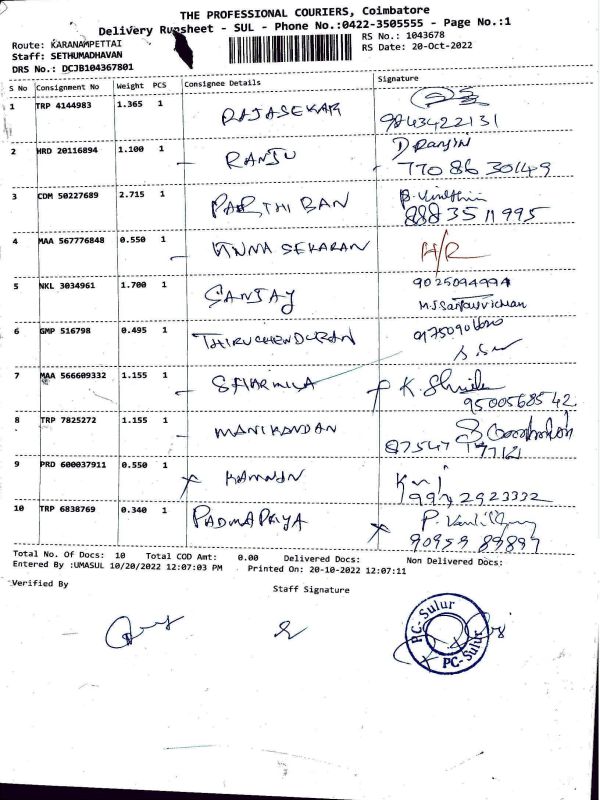 THE PROFESSIONAL COURIERS, Coimbatore
Delivery Runsheet - SUL - Phone No.:0422-3505555 - Page No.:1
Route: KARANAMPETTAI
RS No.: 1043678
Staff: SETHUMADHAVAN
RS Date: 20-Oct-2022
DRS No.: DCJB104367801
S No Consignment No Weight PCS Consignee Details Signature
1 TRP 4144983 1.365 1 RAJASEKAR
9843422131
2 HRD 20116894 1.100 1 RANJU D Ranjin
77086 30149
3 CDM 50227689 2.715 1 PARTHIBAN
88835 11995
4 MAA 567776848 0.550 1 GUNA SEKARAN H/R
5 NKL 3034961 1.700 1 SANJAY 9025094994
6 GMP 516798 0.495 1 THIRUCHENDURAN
7 MAA 566609332 1.155 1 SHARMILA K.
9500568542
8 TRP 7825272 1.155 1 MANIKANDAN
87547 77121
9 PRD 600037911 0.550 1 KANNAN
99942923332
10 TRP 6838769 0.340 1 PADMAPRIYA P.
90959 89897
Total No. Of Docs: 10 Total COD Amt: 0.00 Delivered Docs: Non Delivered Docs:
Entered By :UMASUL 10/20/2022 12:07:03 PM Printed On: 20-10-2022 12:07:11
Verified By Staff Signature
PC-Sulur
PC-Sulur